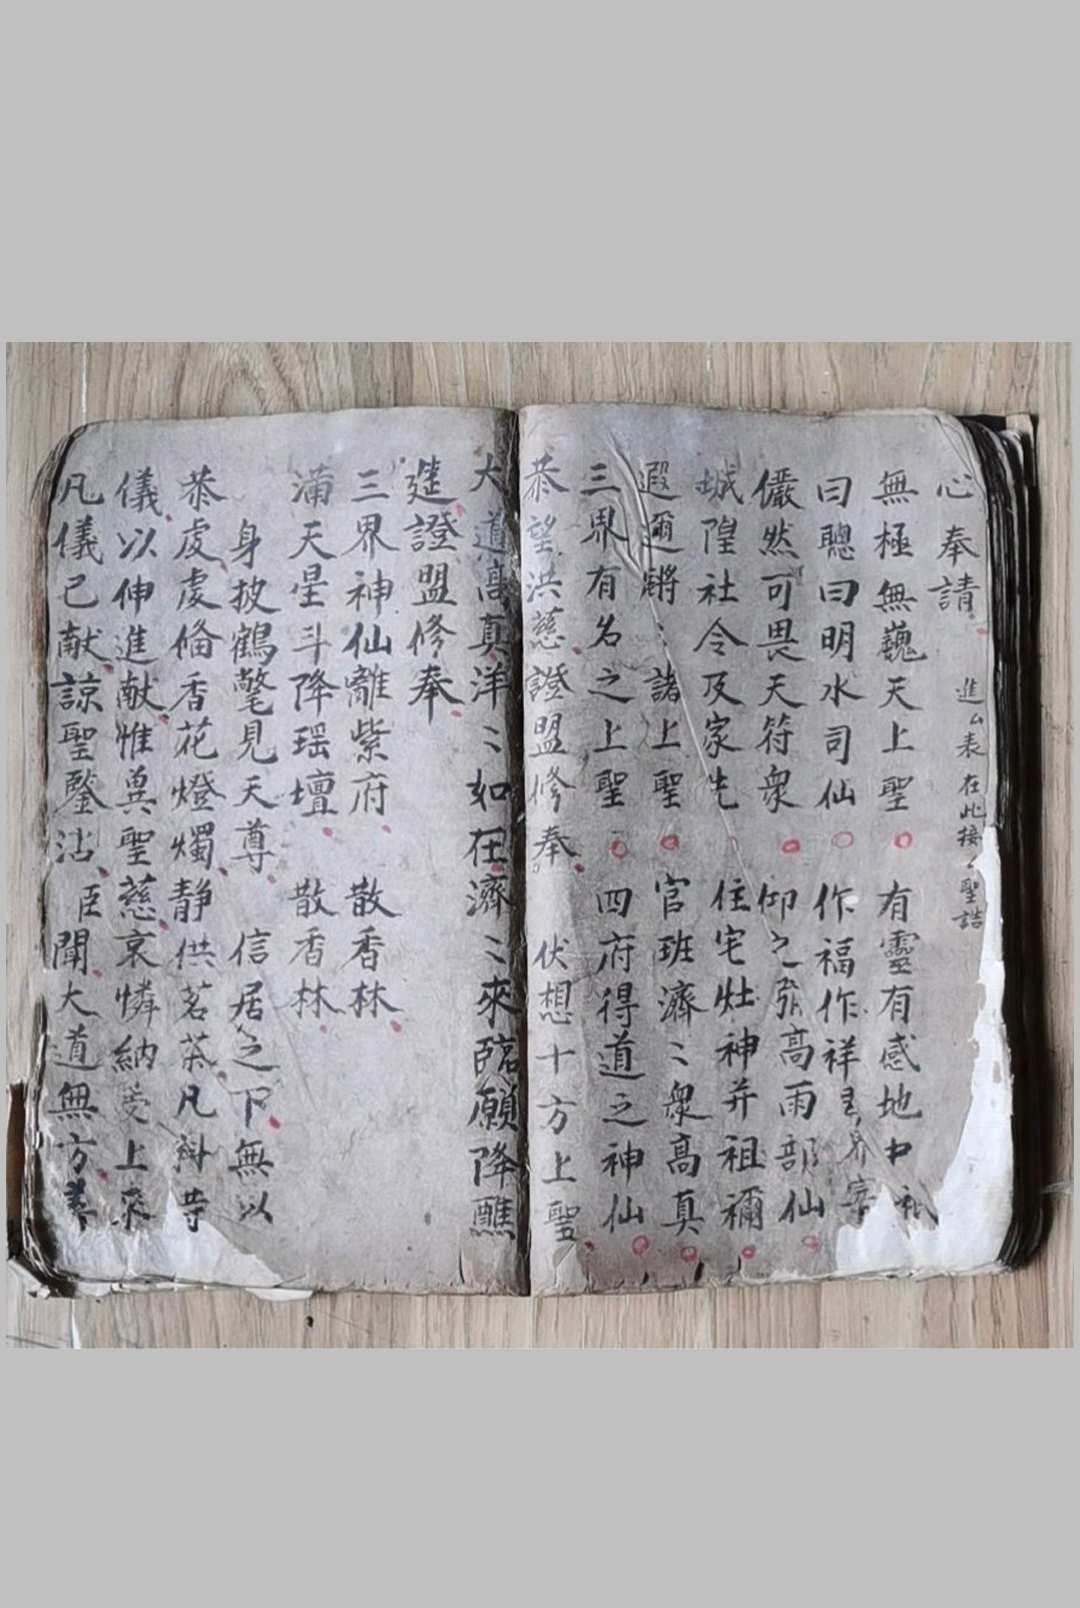 心奉請 進厶表在此接〻聖誥
無極無巍天上聖 有靈有感地中祇
曰聰曰明水司仙 作福作祥 界
儼然可畏天符衆 仰之弥高雨部仙
城隍社令及家先 住宅灶神并祖禰
遐邇 〻諸上聖 官班濟〻衆高真
三界有名之上聖 四府得道之神仙
恭望洪慈證盟修奉 伏想十方上聖
大道高真洋〻如在濟〻來臨願降醮
筵證盟修奉
三界神仙離紫府 散香林
滿天星斗降瑶壇 散香林
身披鶴氅見天尊 信居之下無以
恭虔虔俻香花燈燭静供茗茶凡料等
儀以伸進献惟兾聖慈哀憐納受上來
凡儀已献諒聖鑒沾 臣聞大道無方